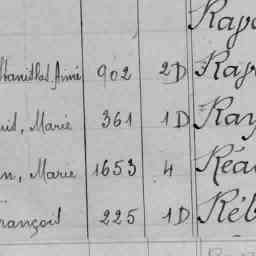 Rap
Stanislas, Aimé 902 2D Rap
uis, Marie 361 1D Ray
n, Marie 1653 4 Réa
rançois 225 1D Réb